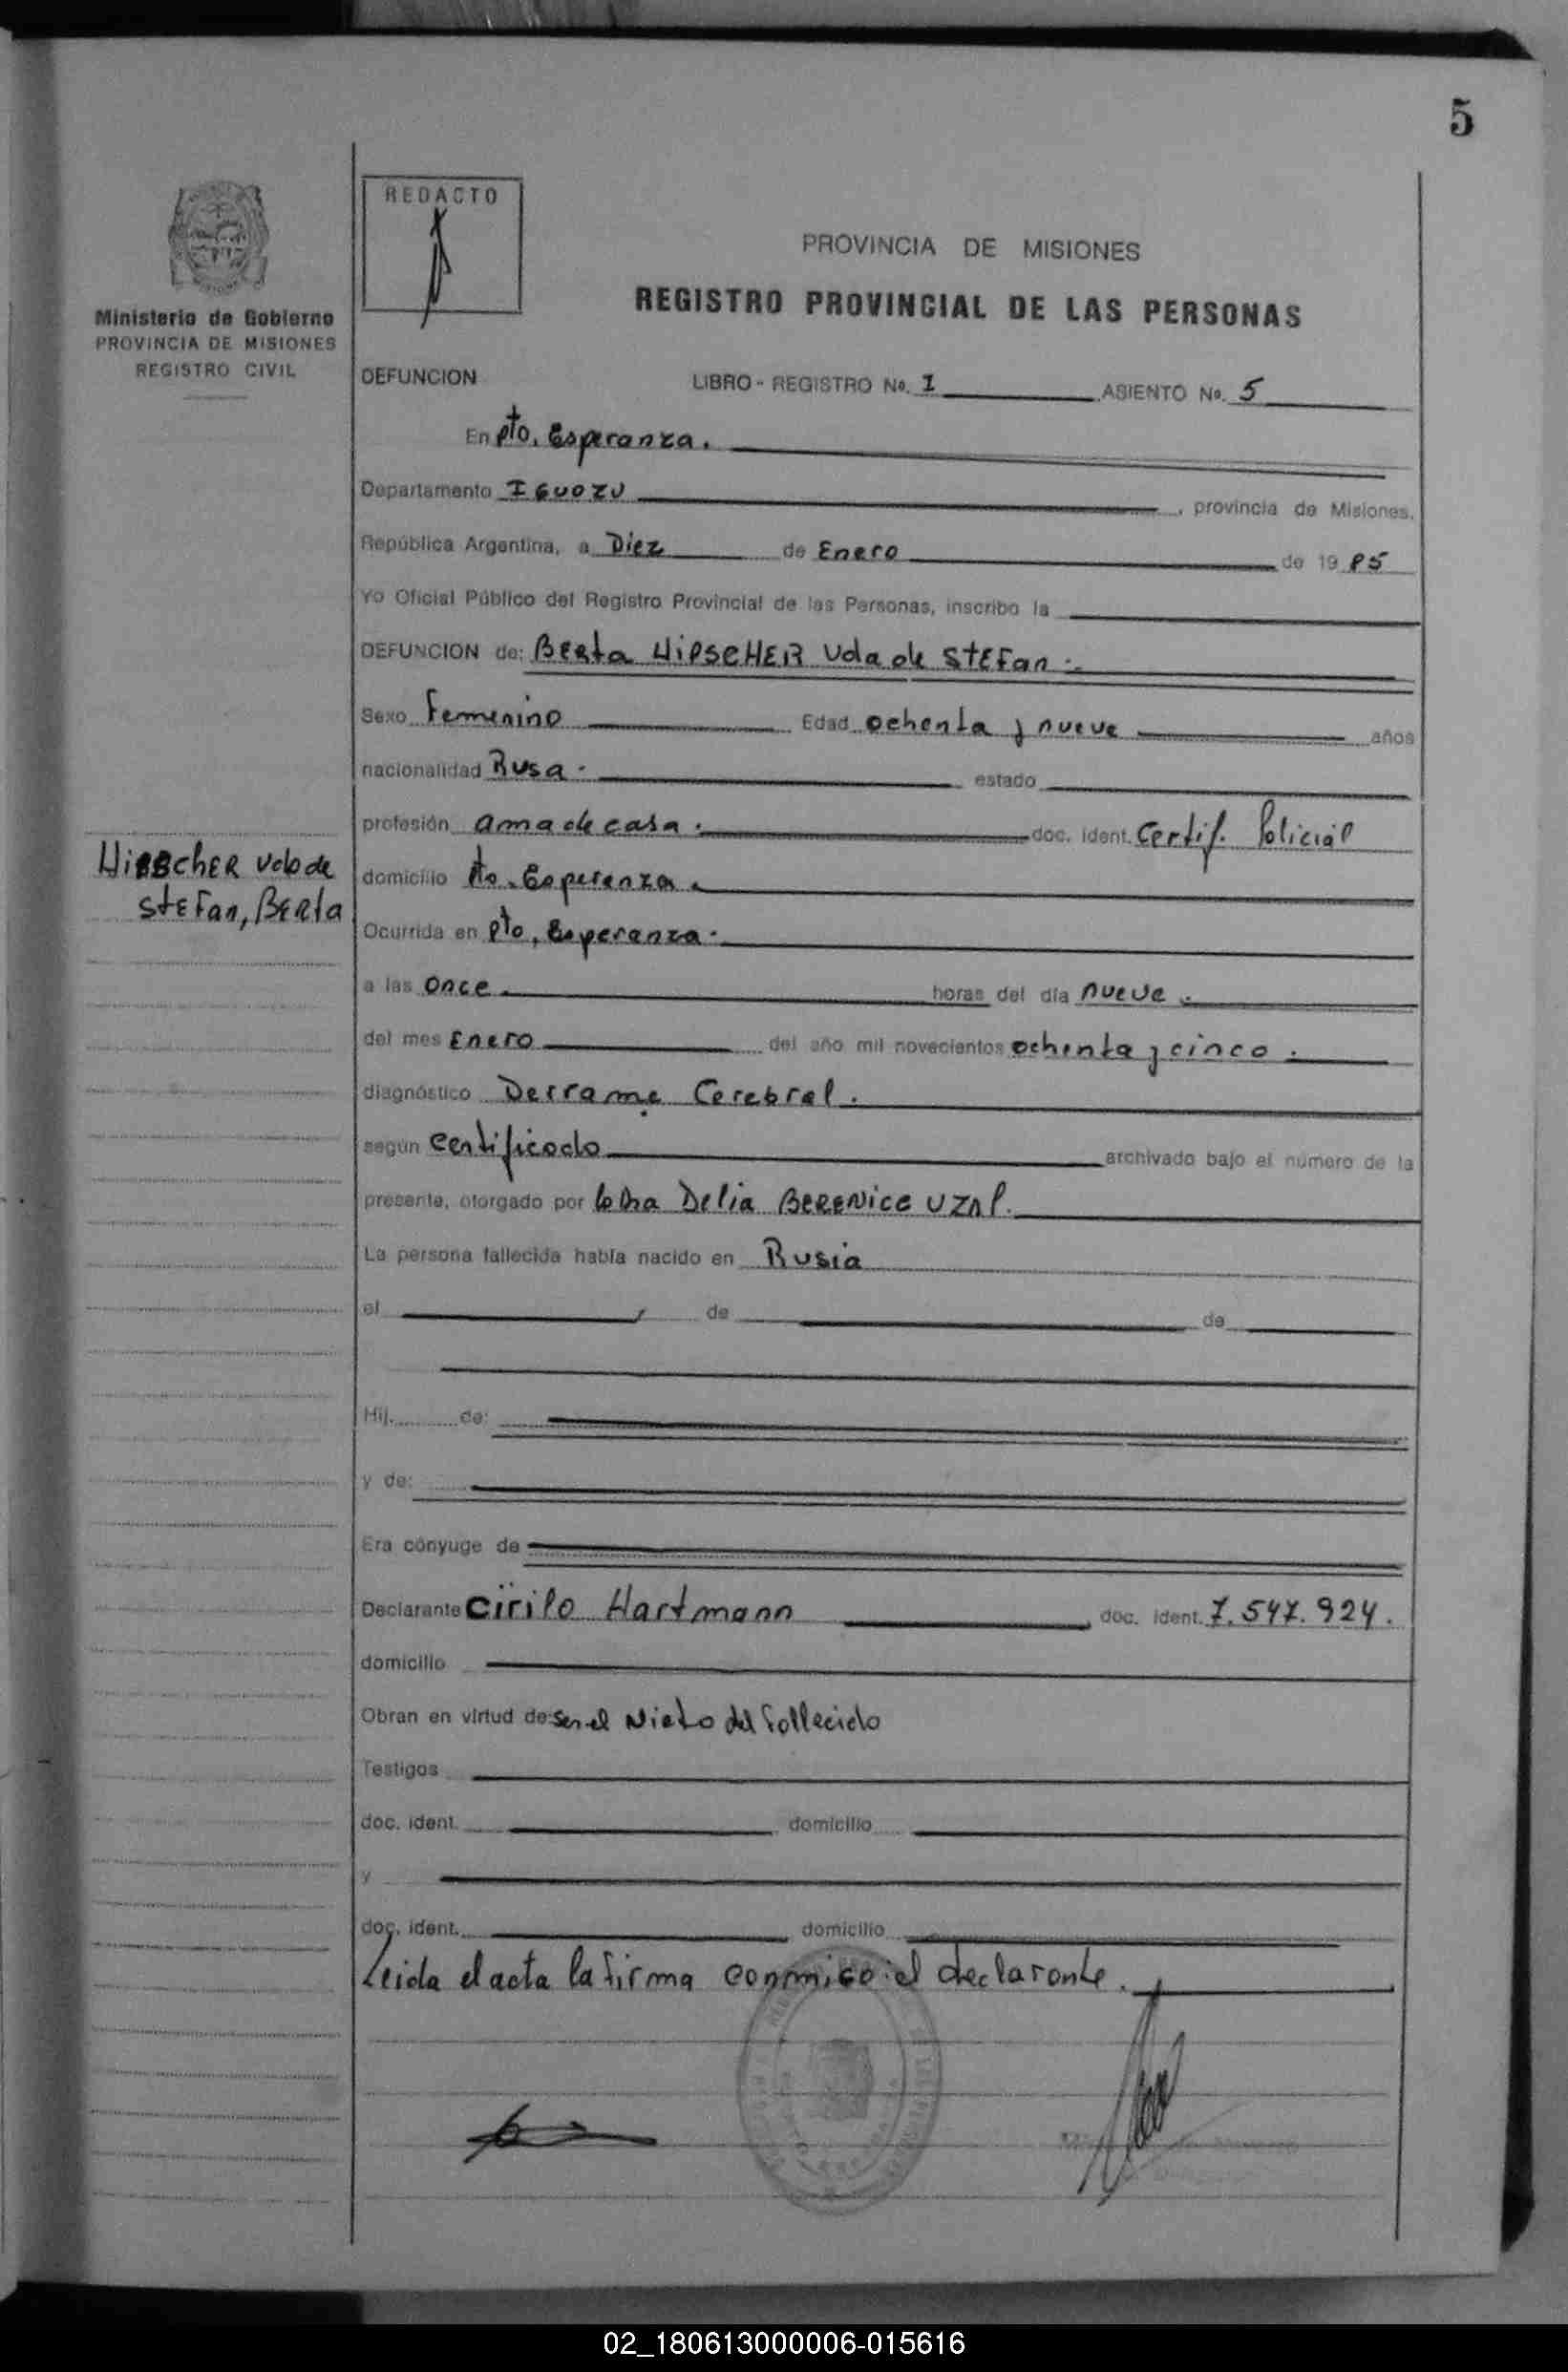 5
REDACTO
PROVINCIA DE MISIONES
REGISTRO PROVINCIAL DE LAS PERSONAS
Ministerio de Gobierno
PROVINCIA DE MISIONES
REGISTRO CIVIL
DEFUNCION LIBRO - REGISTRO No. 1 ASIENTO No. 5
En Pto. Esperanza.
Departamento IGUAZU, provincia de Misiones,
República Argentina, a Diez de Enero de 1985
Yo Oficial Público del Registro Provincial de las Personas, inscribo la
DEFUNCION de: Berta HIPSCHER Vda de Stefan.
Sexo Femenino Edad ochenta y nueve años
nacionalidad Rusa. estado
profesión ama de casa. doc. ident. Certif. Policial
HIBSCHER Vda de
Stefan, Berta
domicilio Pto. Esperanza.
Ocurrida en Pto, Esperanza.
a las once. horas del día nueve.
del mes Enero del año mil novecientos ochenta y cinco.
diagnóstico Derrame Cerebral.
según certificado archivado bajo el número de la
presente, otorgado por la Dra Delia BERENICE UZAL.
La persona fallecida había nacido en Rusia
el de de
Hij. de:
y de:
Era cónyuge de
Declarante Cirilo Hartmann, doc. ident. 7.547.924.
domicilio
Obran en virtud de: ser el Nieto del fallecido
Testigos
doc. ident. domicilio
y
doc. ident. domicilio
Leida el acta la firma conmigo el declarante.
02_180613000006-015616